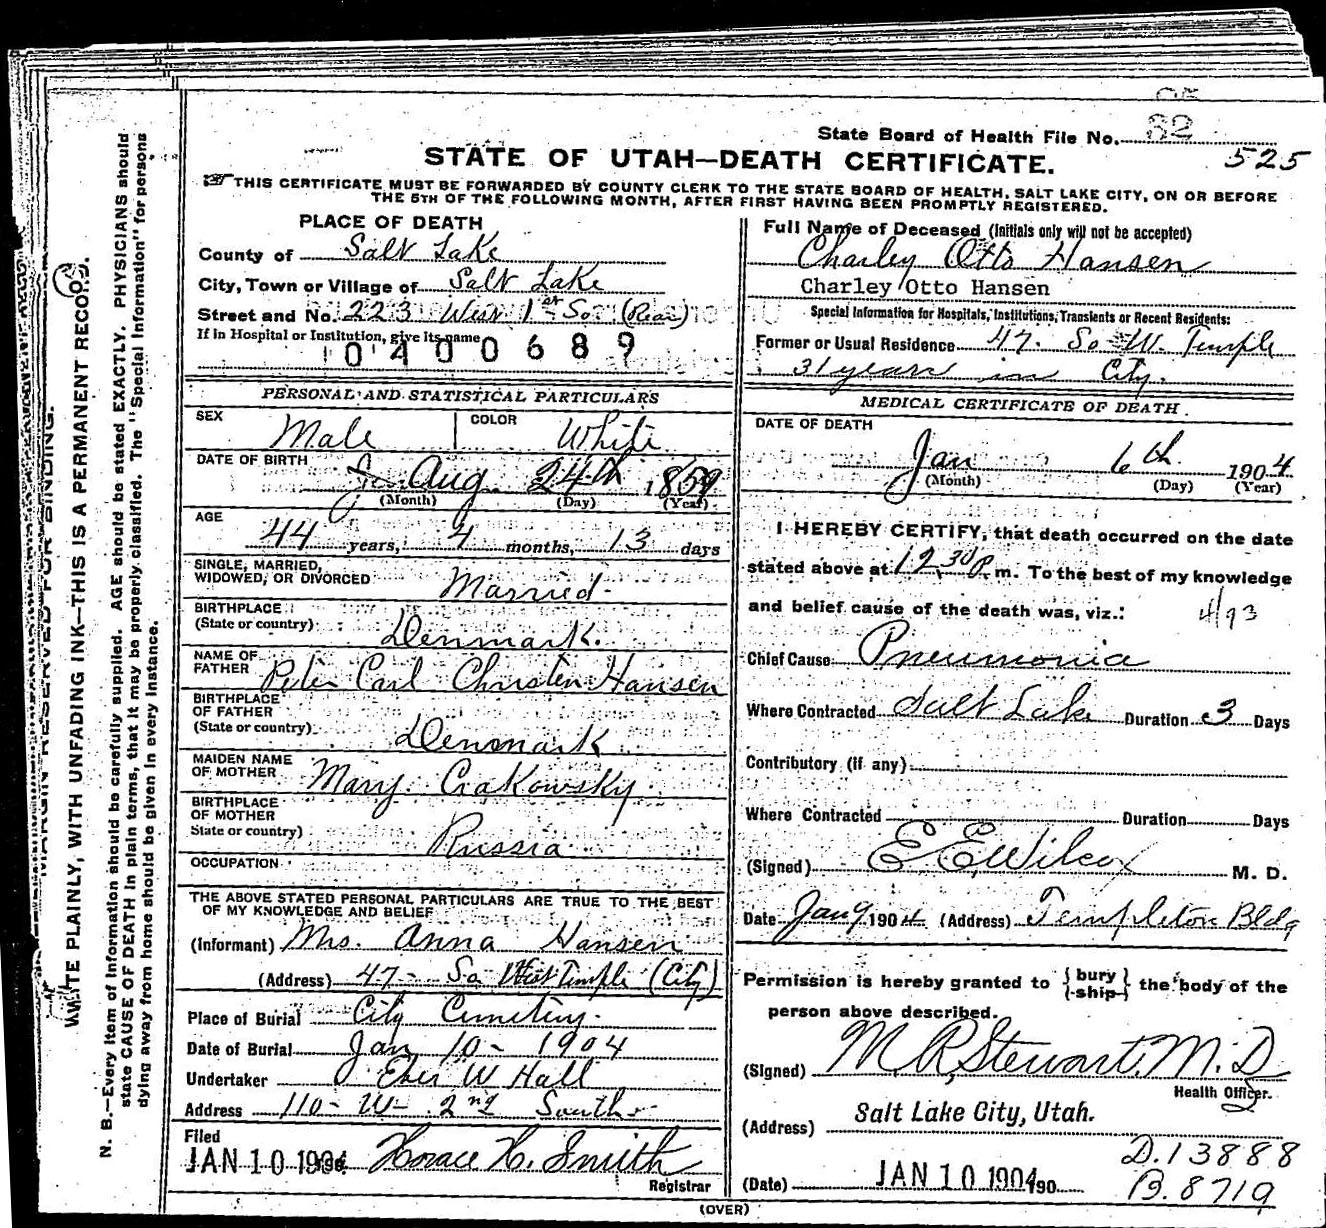 State Board of Health File No. 82
525
STATE OF UTAH—DEATH CERTIFICATE.
THIS CERTIFICATE MUST BE FORWARDED BY COUNTY CLERK TO THE STATE BOARD OF HEALTH, SALT LAKE CITY, ON OR BEFORE
THE 5TH OF THE FOLLOWING MONTH, AFTER FIRST HAVING BEEN PROMPTLY REGISTERED.
PLACE OF DEATH
County of Salt Lake
City, Town or Village of Salt Lake
Street and No. 223 West 1st So (Rear)
If in Hospital or Institution, give its name
0400689
PERSONAL AND STATISTICAL PARTICULARS
SEX Male COLOR White
DATE OF BIRTH Aug 24th 1859
(Month) (Day) (Year)
AGE 44 years, 4 months, 13 days
SINGLE, MARRIED,
WIDOWED, OR DIVORCED Married
BIRTHPLACE
(State or country) Denmark.
NAME OF
FATHER Peter Carl Christen Hansen
BIRTHPLACE
OF FATHER
(State or country) Denmark
MAIDEN NAME
OF MOTHER Mary Crakowsky
BIRTHPLACE
OF MOTHER
State or country) Russia
OCCUPATION
THE ABOVE STATED PERSONAL PARTICULARS ARE TRUE TO THE BEST
OF MY KNOWLEDGE AND BELIEF
(Informant) Mrs. Anna Hansen
(Address) 47- So West Temple (City)
Place of Burial City Cemetery.
Date of Burial Jan 10- 1904
Undertaker Eber W Hall
Address 110- W- 2nd South
Filed
JAN 10 1904 Horace H. Smith
Registrar
Full Name of Deceased (Initials only will not be accepted)
Charley Otto Hansen
Charley Otto Hansen
Special Information for Hospitals, Institutions, Transients or Recent Residents:
Former or Usual Residence 47. So W. Temple
31 years in City.
MEDICAL CERTIFICATE OF DEATH.
DATE OF DEATH
Jan 6th 1904.
(Month) (Day) (Year)
I HEREBY CERTIFY, that death occurred on the date
stated above at 12.30 P. m. To the best of my knowledge
and belief cause of the death was, viz.: 4/93
Chief Cause Pneumonia
Where Contracted Salt Lake Duration 3 Days
Contributory (if any)
Where Contracted Duration Days
(Signed) E E Wilcox M. D.
Date Jan 9 1904 (Address) Templeton Bldg
Permission is hereby granted to {bury ship} the body of the
person above described.
(Signed) M. R. Stewart, M. D
Health Officer.
(Address) Salt Lake City, Utah.
D. 13888
(Date) JAN 10 1904 190
B. 8719
(OVER)
MARGIN RESERVED FOR BINDING.
WRITE PLAINLY, WITH UNFADING INK—THIS IS A PERMANENT RECORD.
N. B.—Every item of Information should be carefully supplied. AGE should be stated EXACTLY. PHYSICIANS should
state CAUSE OF DEATH in plain terms, that it may be properly classified. The "Special Information" for persons
dying away from home should be given in every instance.